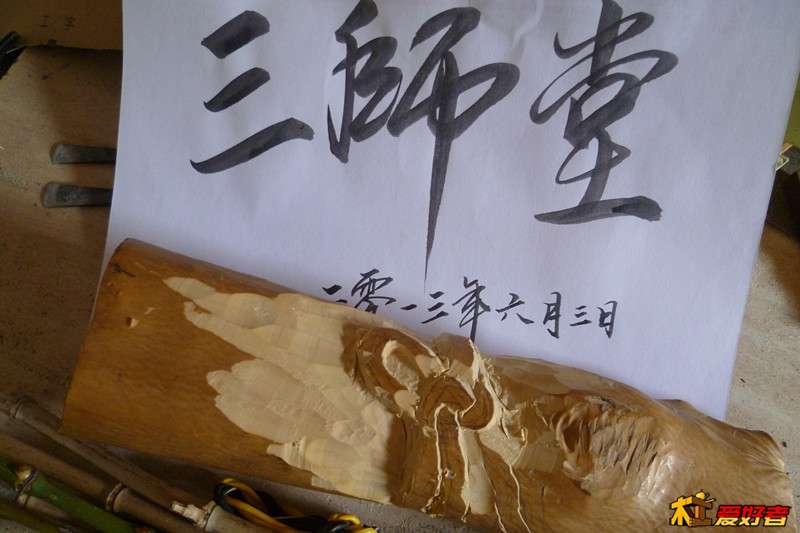 三師堂
二零一三年六月三日
爱好者